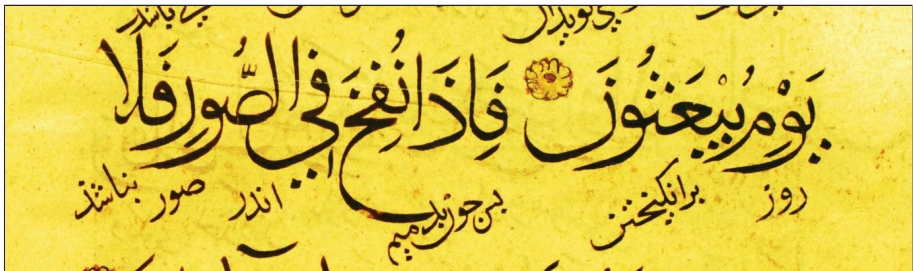 يَوْمِ يُبْعَثُونَ فَاِذَا نُفِخَ فِي الصُّورِ فَلَا
روز برانگیختن پس چون بدمیم اندر صور نباشد